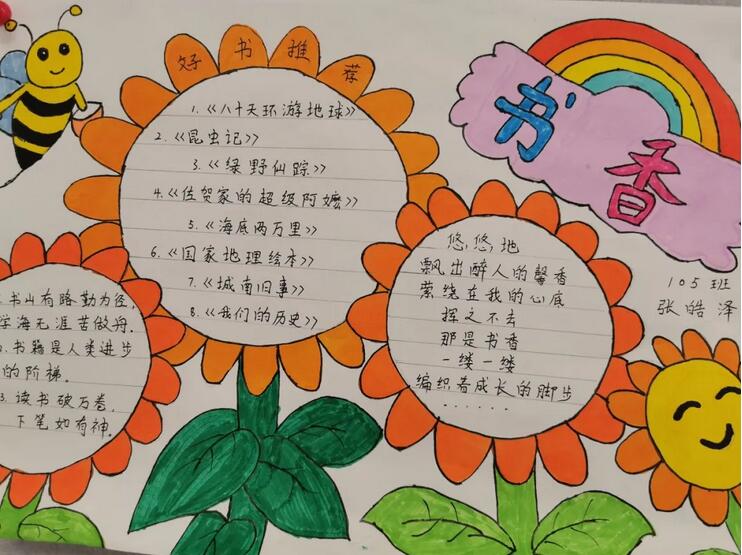 好书推荐
1.《八十天环游地球》
2.《昆虫记》
3.《绿野仙踪》
4.《佐贺家的超级阿嬷》
5.《海底两万里》
6.《国家地理绘本》
7.《城南旧事》
8.《我们的历史》
书香
105班
张皓泽
悠悠地
飘出醉人的馨香
萦绕在我的心底
挥之不去
那是书香
一缕一缕
编织着成长的脚步
......
书山有路勤为径,
学海无涯苦做舟.
书籍是人类进步
的阶梯.
3.读书破万卷,
下笔如有神.